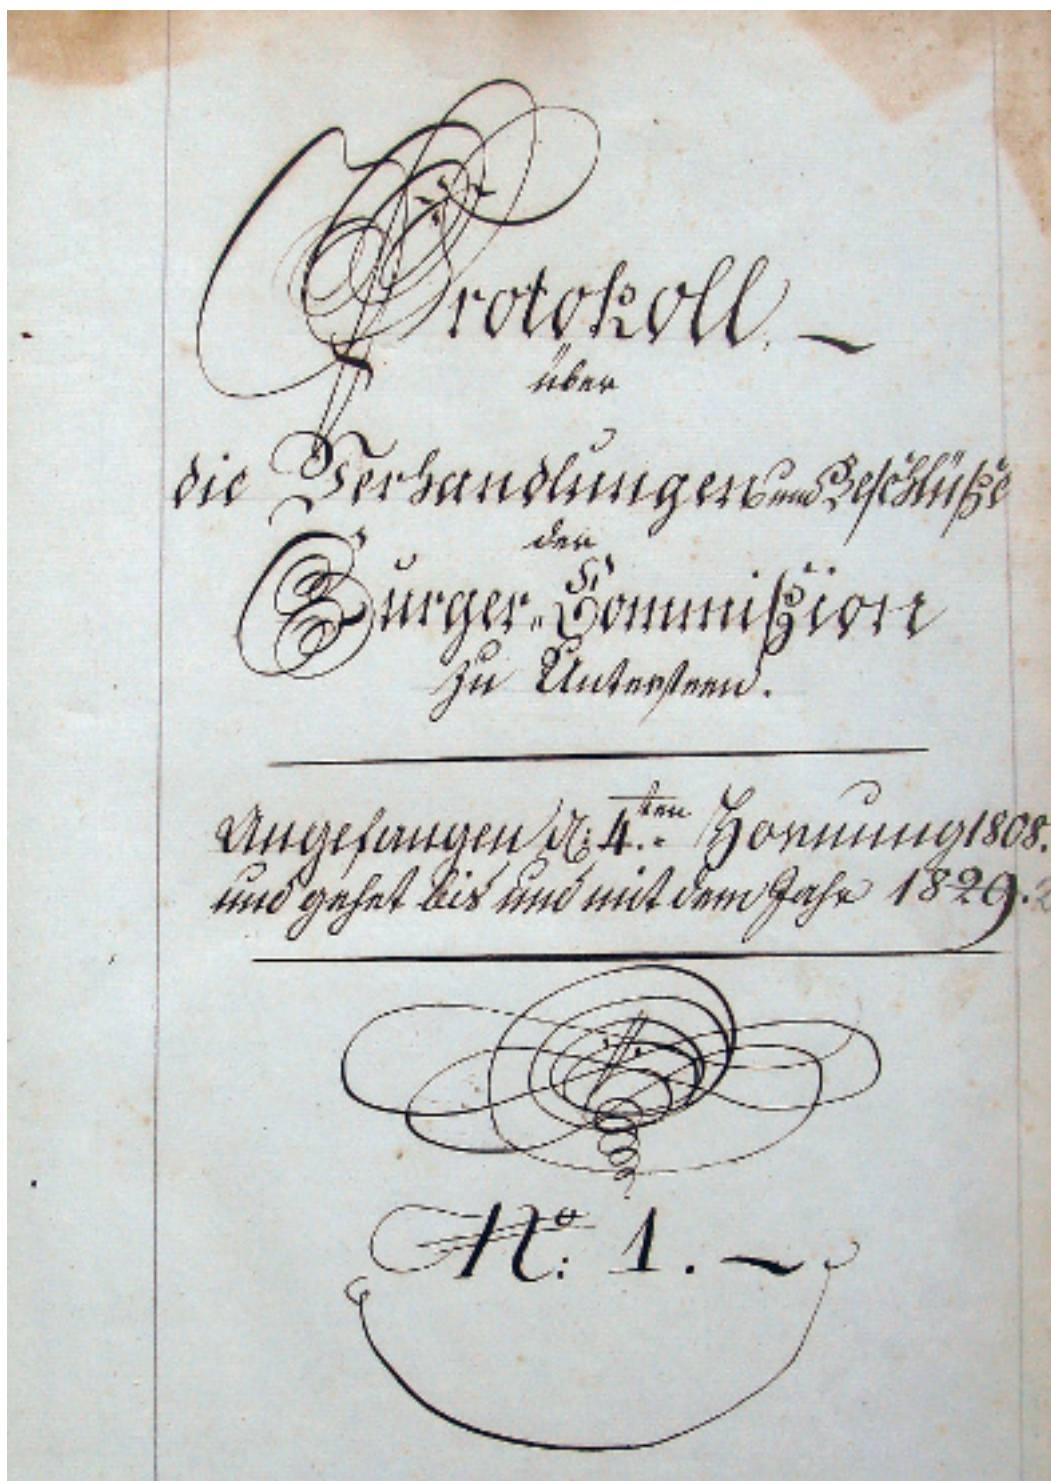 Protokoll. ~
über
die Verhandlungen und Beschlüße
der
Burger-Commißion
zu Unterseen.
Angefangen d: 4.ten Hornung 1808.
und gehet bis und mit dem Jahr 1829.
No: 1. ~